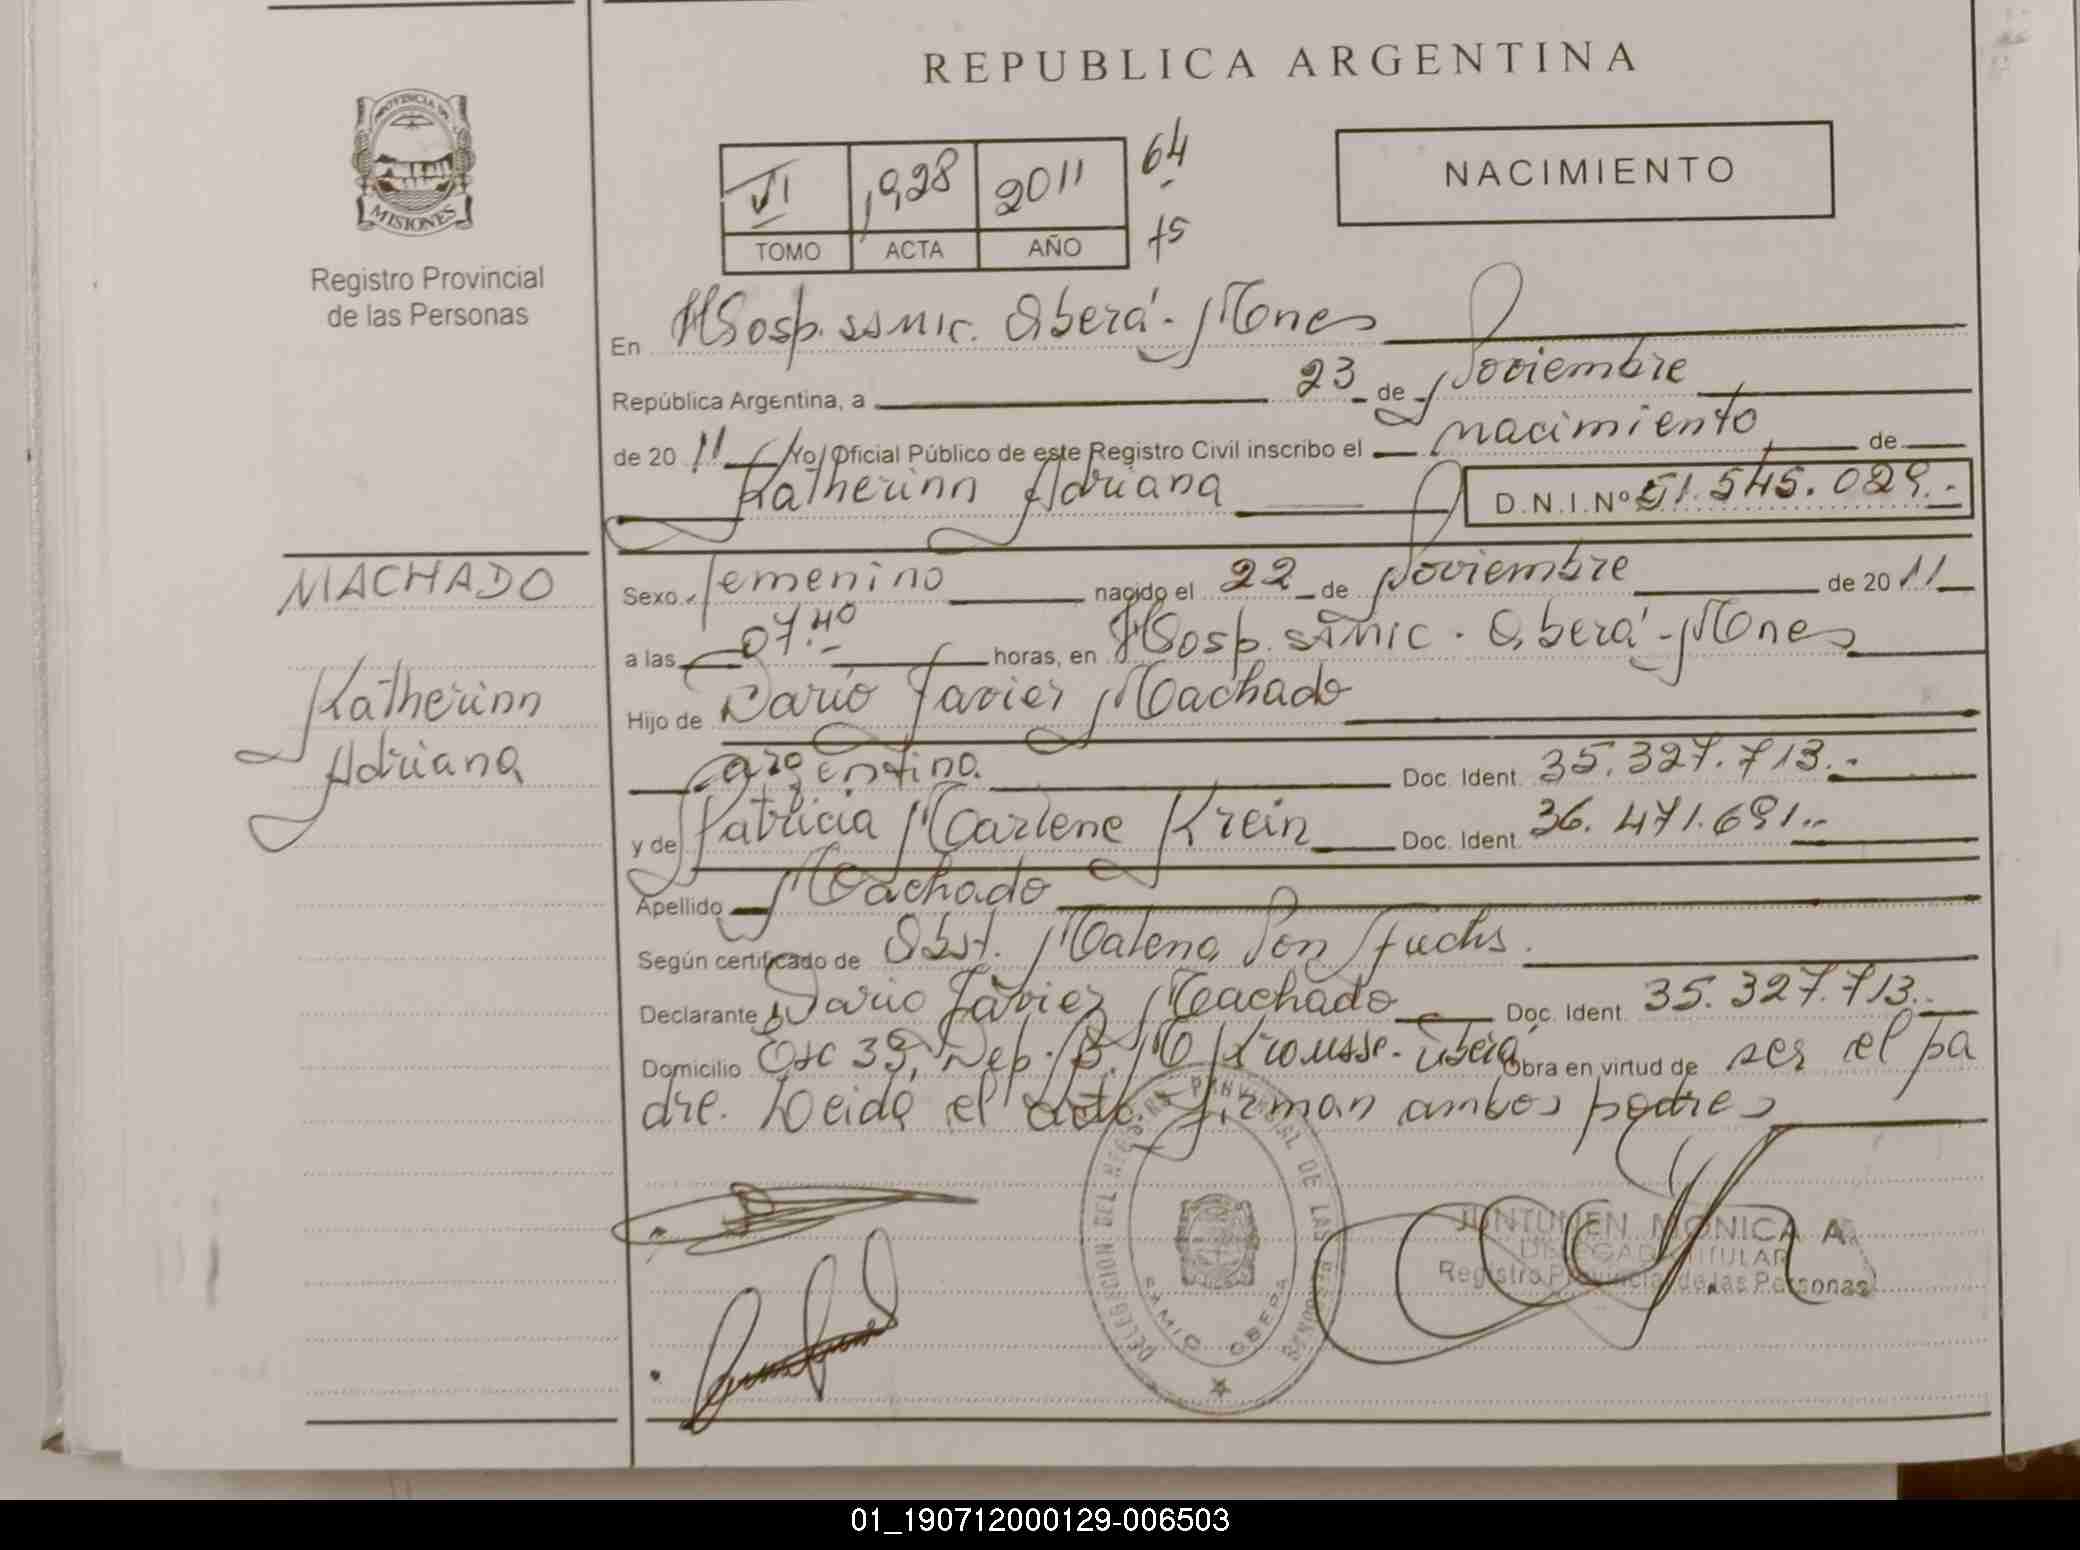 REPUBLICA ARGENTINA
PROVINCIA DE
MISIONES
Registro Provincial
de las Personas
VI 1928 2011 64
TOMO ACTA AÑO 75
NACIMIENTO
En Hosp. SAMIC. Oberá - Mnes
República Argentina, a 23 de Noviembre
de 20 11 Yo Oficial Público de este Registro Civil inscribo el nacimiento de
Katherinn Adriana D.N.I.Nº 51.545.029.-
MACHADO
Katherinn
Adriana
Sexo femenino nacido el 22 de Noviembre de 20 11
a las 07.40 horas, en Hosp. SAMIC. Oberá - Mnes
Hijo de Dario Javier Machado
argentino Doc. Ident. 35.327.713.-
y de Patricia Marlene Krein Doc. Ident. 36.471.691.-
Apellido Machado
Según certificado de Obst. Malena Fuchs.
Declarante Dario Javier Machado Doc. Ident. 35.327.713.-
Domicilio 39, Dep. B. Krausse - Oberá Obra en virtud de ser el pa
dre. Leida el acta firman ambos padres
DELEGACION DEL REGISTRO PROVINCIAL DE LAS PERSONAS
SAMIC OBERA
JUNTUNEN MONICA A.
DELEGADA TITULAR
Registro Provincial de las Personas
01_190712000129-006503